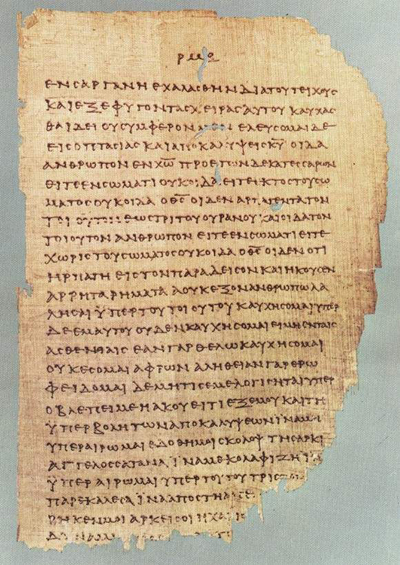 ΕΝ ΣΑΡΓΑΝΗ ΕΧΑΛΑΣΘΗΝ ΔΙΑ ΤΟΥ ΤΕΙΧΟΥΣ
ΚΑΙ ΕΞΕΦΥΓΟΝ ΤΑΣ ΧΕΙΡΑΣ ΑΥΤΟΥ ΚΑΥΧΑΣ
ΘΑΙ ΔΕΙ ΟΥ ΣΥΜΦΕΡΟΝ ΕΛΕΥΣΟΜΑΙ ΔΕ
ΕΙΣ ΟΠΤΑΣΙΑΣ ΚΑΙ ΑΠΟΚΑΛΥΨΕΙΣ Κ̅Υ̅ ΟΙΔΑ
ΑΝΘΡΩΠΟΝ ΕΝ Χ̅Ω̅ ΠΡΟ ΕΤΩΝ ΔΕΚΑΤΕΣΣΑΡΩΝ
ΕΙΤΕ ΕΝ ΣΩΜΑΤΙ ΟΥΚ ΟΙΔΑ ΕΙΤΕ ΕΚΤΟΣ ΤΟΥ ΣΩ
ΜΑΤΟΣ ΟΥΚ ΟΙΔΑ Ο Θ̅Σ̅ ΟΙΔΕΝ ΑΡΠΑΓΕΝΤΑ ΤΟΝ
ΤΟΙΟΥΤΟΝ ΕΩΣ ΤΡΙΤΟΥ ΟΥΡΑΝΟΥ ΚΑΙ ΟΙΔΑ ΤΟΝ
ΤΟΙΟΥΤΟΝ ΑΝΘΡΩΠΟΝ ΕΙΤΕ ΕΝ ΣΩΜΑΤΙ ΕΙΤΕ
ΧΩΡΙΣ ΤΟΥ ΣΩΜΑΤΟΣ ΟΥΚ ΟΙΔΑ Ο Θ̅Σ̅ ΟΙΔΕΝ ΟΤΙ
ΗΡΠΑΓΗ ΕΙΣ ΤΟΝ ΠΑΡΑΔΕΙΣΟΝ ΚΑΙ ΗΚΟΥΣΕΝ
ΑΡΡΗΤΑ ΡΗΜΑΤΑ Α ΟΥΚ ΕΞΟΝ ΑΝΘΡΩΠΩ ΛΑ
ΛΗΣΑΙ ΥΠΕΡ ΤΟΥ ΤΟΙΟΥΤΟΥ ΚΑΥΧΗΣΟΜΑΙ ΥΠΕΡ
ΔΕ ΕΜΑΥΤΟΥ ΟΥΔΕΝ ΚΑΥΧΗΣΟΜΑΙ ΕΙ ΜΗ ΕΝ ΤΑΙΣ
ΑΣΘΕΝΕΙΑΙΣ ΕΑΝ ΓΑΡ ΘΕΛΩ ΚΑΥΧΗΣΟΜΑΙ
ΟΥΚ ΕΣΟΜΑΙ ΑΦΡΩΝ ΑΛΗΘΕΙΑΝ ΓΑΡ ΕΡΩ
ΦΕΙΔΟΜΑΙ ΔΕ ΜΗ ΤΙΣ ΕΜΕ ΛΟΓΙΣΗΤΑΙ ΥΠΕΡ
Ο ΒΛΕΠΕΙ ΜΕ Η ΑΚΟΥΕΙ ΤΙ ΕΞ ΕΜΟΥ ΚΑΙ ΤΗ
ΥΠΕΡΒΟΛΗ ΤΩΝ ΑΠΟΚΑΛΥΨΕΩΝ ΙΝΑ Μ
ΥΠΕΡΑΙΡΩΜΑΙ ΕΔΟΘΗ ΜΟΙ ΣΚΟΛΟΨ ΤΗ ΣΑΡΚΙ
ΑΓΓΕΛΟΣ ΣΑΤΑΝΑ ΙΝΑ ΜΕ ΚΟΛΑΦΙΖΗ Ι
ΥΠΕΡΑΙΡΩΜΑΙ ΥΠΕΡ ΤΟΥΤΟΥ ΤΡΙΣ
ΠΑΡΕΚΑΛΕΣΑ ΙΝΑ ΑΠΟΣΤΗ
ΚΕΝ ΜΟΙ ΑΡΚΕΙ ΣΟΙ Η ΧΑΡΙΣ